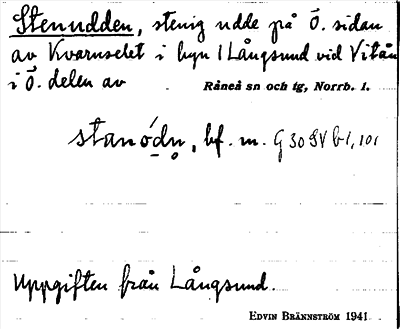 Stenudden, stenig udde på Ö. sidan
av Kvarnselet i byn Långsund vid Vitån
i Ö. delen av Råneå sn och tg, Norrb. l.
stanódn, bf. m. G 30 SV b-1, 101
Uppgiften från Långsund.
EDVIN BRÄNNSTRÖM 1941